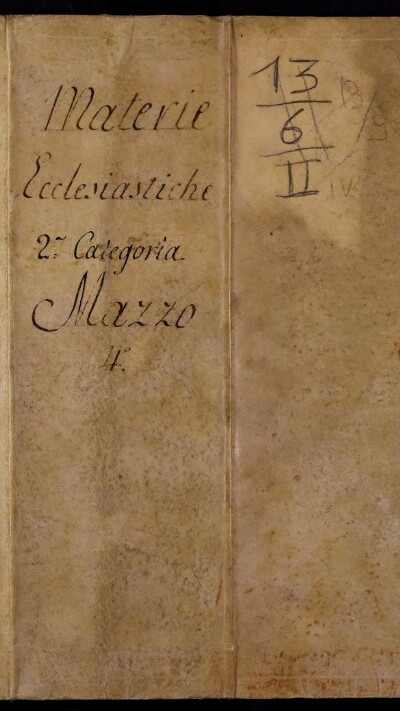 Materie
Ecclesiastiche
2.ª Categoria.
Mazzo
4.º
13
6
II